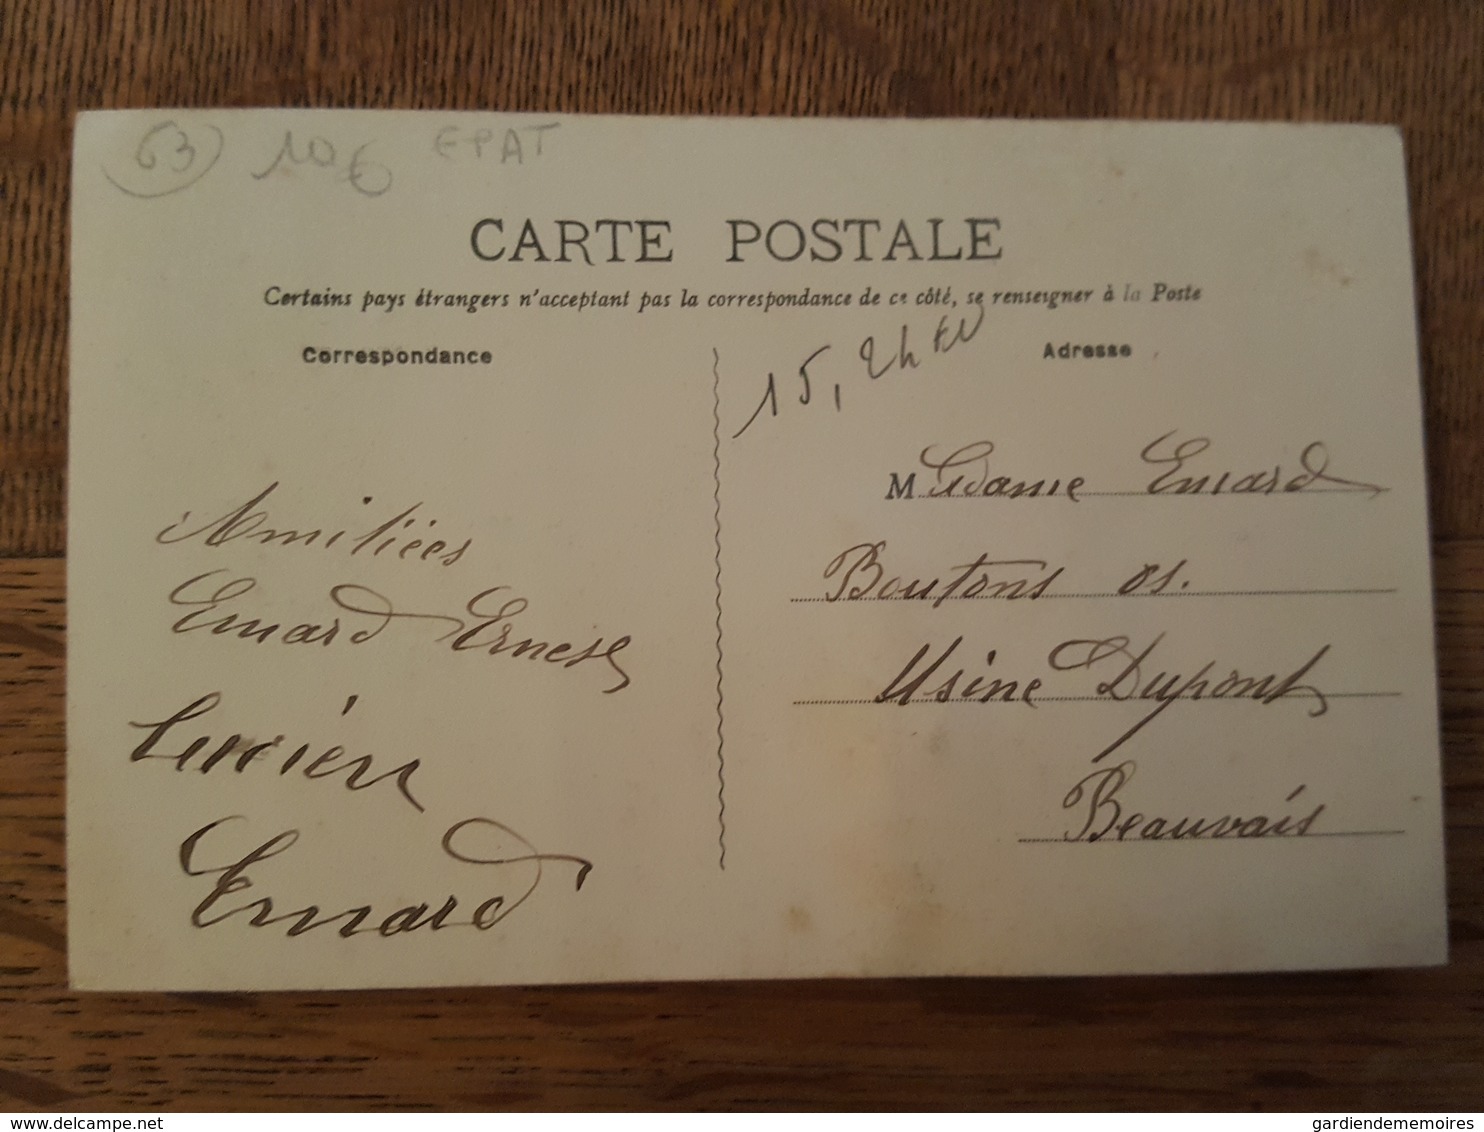 63 10€ EPAT
CARTE POSTALE
Certains pays étrangers n'acceptant pas la correspondance de ce côté, se renseigner à la Poste
Correspondance
Amitiées
Emard Ernest
Emard
Adresse
Madame Emard
Boutons os.
Usine Dupont
Beauvais
delcampe.net
gardiendememoires